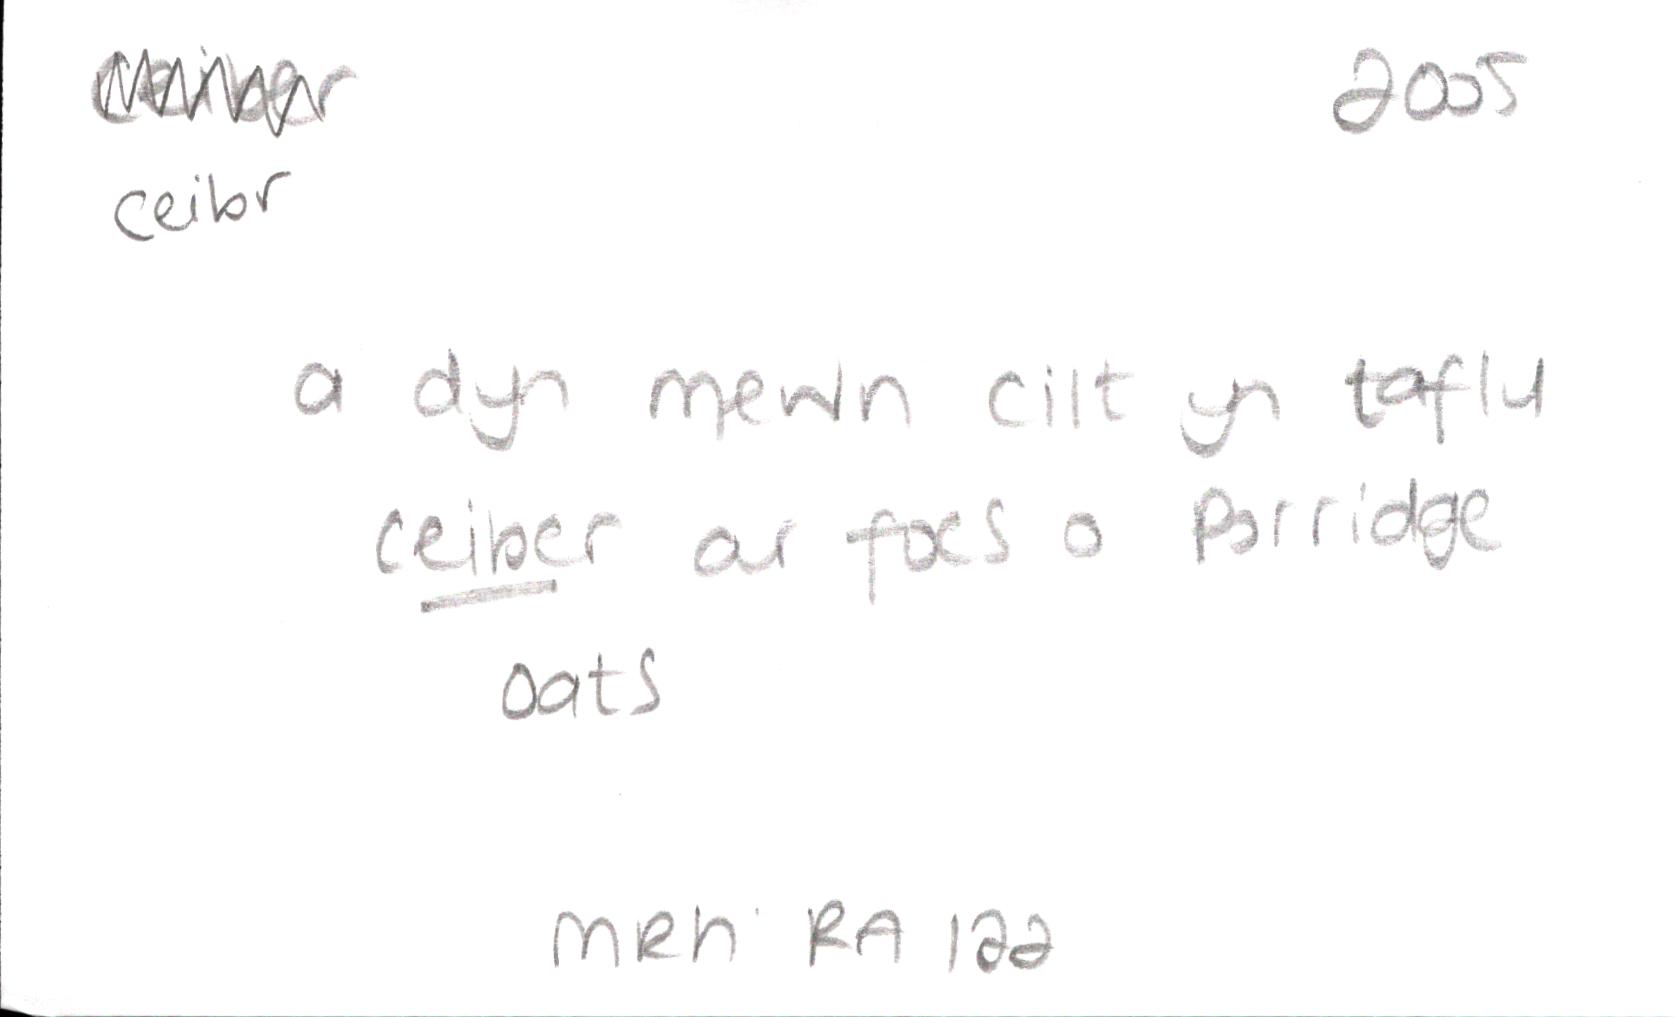 Ceiber 2005
ceibr
a dyn mewn cilt yn taflu
ceiber ar focs o Porridge
oats
MRh: RA 122